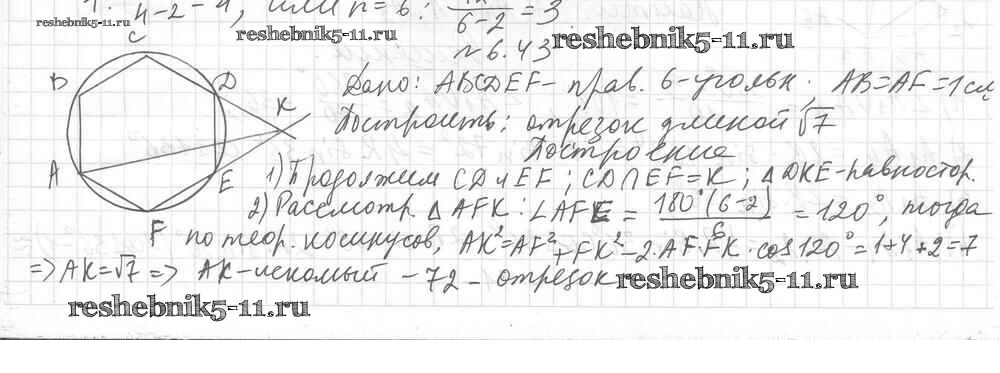 4-2 = 4, или n = 6: 6-2 = 3
reshebnik5-11.ru
reshebnik5-11.ru
reshebnik5-11.ru
№6.43
C
B
D
K
A
E
F
Дано: ABCDEF - прав. 6-угольн. AB=AF=1см
Построить: отрезок длиной √7
Построение
1) Продолжим CD и EF; CD∩EF=K; △DKE-равностор.
2) Рассмотр. △AFK: ∠AFE = 180°(6-2)/6 = 120°, тогда
по теор. косинусов, AK²=AF²+FK²-2·AF·FK·cos120°=1+4+2=7
=> AK=√7 => AK-искомый - 72 - отрезок
reshebnik5-11.ru
reshebnik5-11.ru